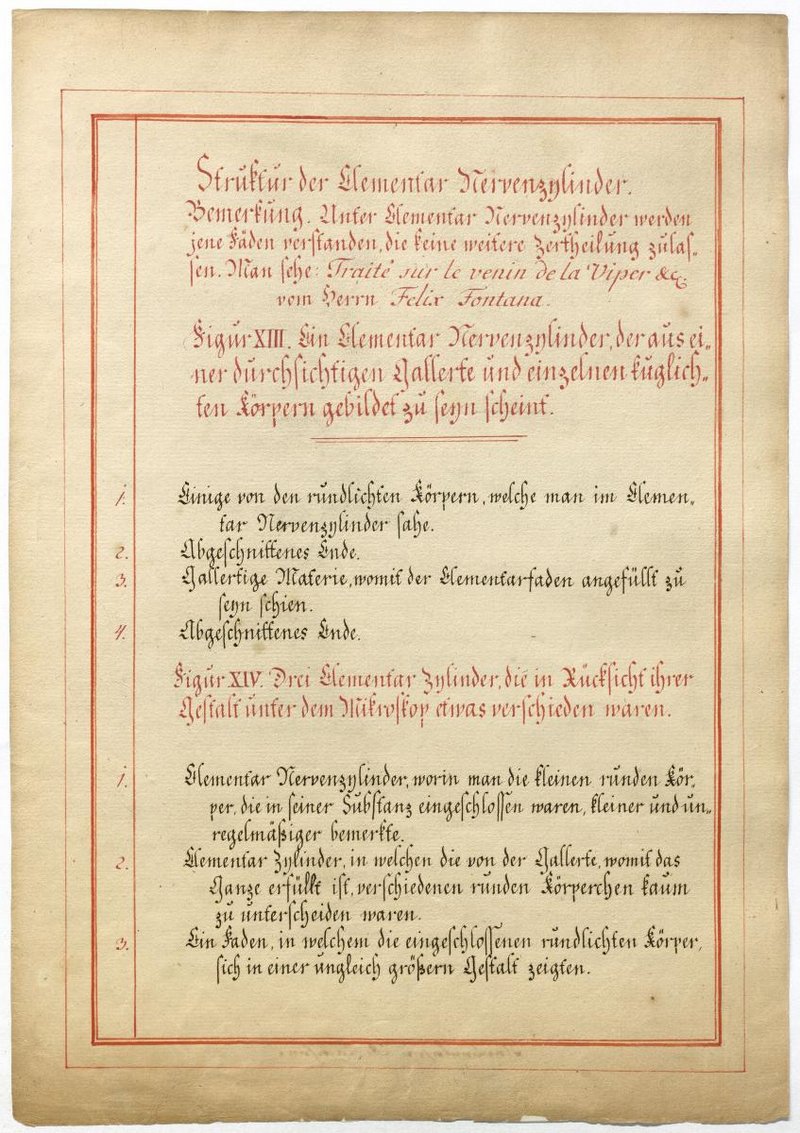 Struktur der Elementar Nervenzylinder.
Bemerkung. Unter Elementar Nervenzylinder werden
jene Fäden verstanden, die keine weitere Zertheilung zulas„
sen. Man sehe: Traité sur le venin de la Viper &c.
vom Herrn Felix Fontana.
Figur XIII. Ein Elementar Nervenzylinder, der aus ei„
ner durchsichtigen Gallerte und einzelnen kuglich„
ten Körpern gebildet zu seyn scheint.
1. Einige von den rundlichten Körpern, welche man im Elemen„
tar Nervenzylinder sahe.
2. Abgeschnittenes Ende.
3. Gallertige Materie, womit der Elementarfaden angefüllt zu
seyn schien.
4. Abgeschnittenes Ende.
Figur XIV. Drei Elementar Zylinder, die in Rücksicht ihrer
Gestalt unter dem Mikroskop etwas verschieden waren.
1. Elementar Nervenzylinder, worin man die kleinen runden Kör„
per, die in seiner Substanz eingeschlossen waren, kleiner und un„
regelmäßiger bemerkte.
2. Elementar Zylinder, in welchen die von der Gallerte, womit das
Ganze erfüllt ist, verschiedenen runden Körperchen kaum
zu unterscheiden waren.
3. Ein Faden, in welchem die eingeschlossenen rundlichten Körper,
sich in einer ungleich größern Gestalt zeigten.